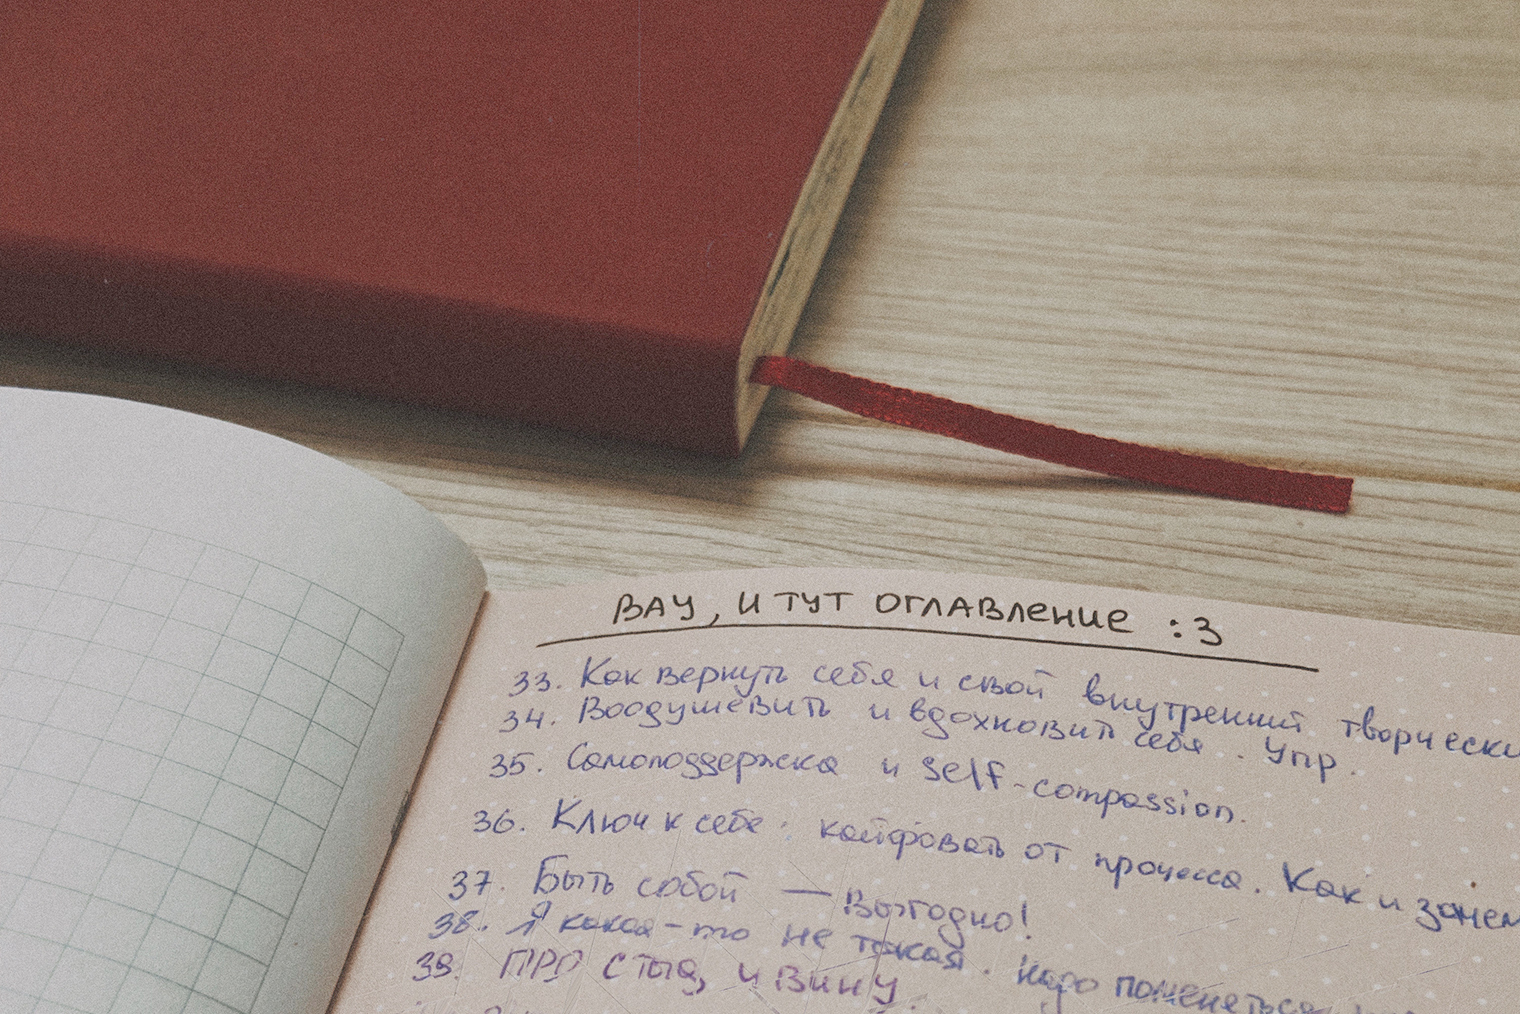 ВАУ, И ТУТ ОГЛАВЛЕНИЕ :3
33. Как вернуть себя и свой внутренний творчески
34. Воодушевить и вдохновить себя. Упр.
35. Самоподдержка и self-compassion.
36. Ключ к себе: кайфовать от процесса. Как и зачем
37. Быть собой — выгодно!
38. Я какая-то не такая. Надо поменяться
39. ПРО стыд, и вину